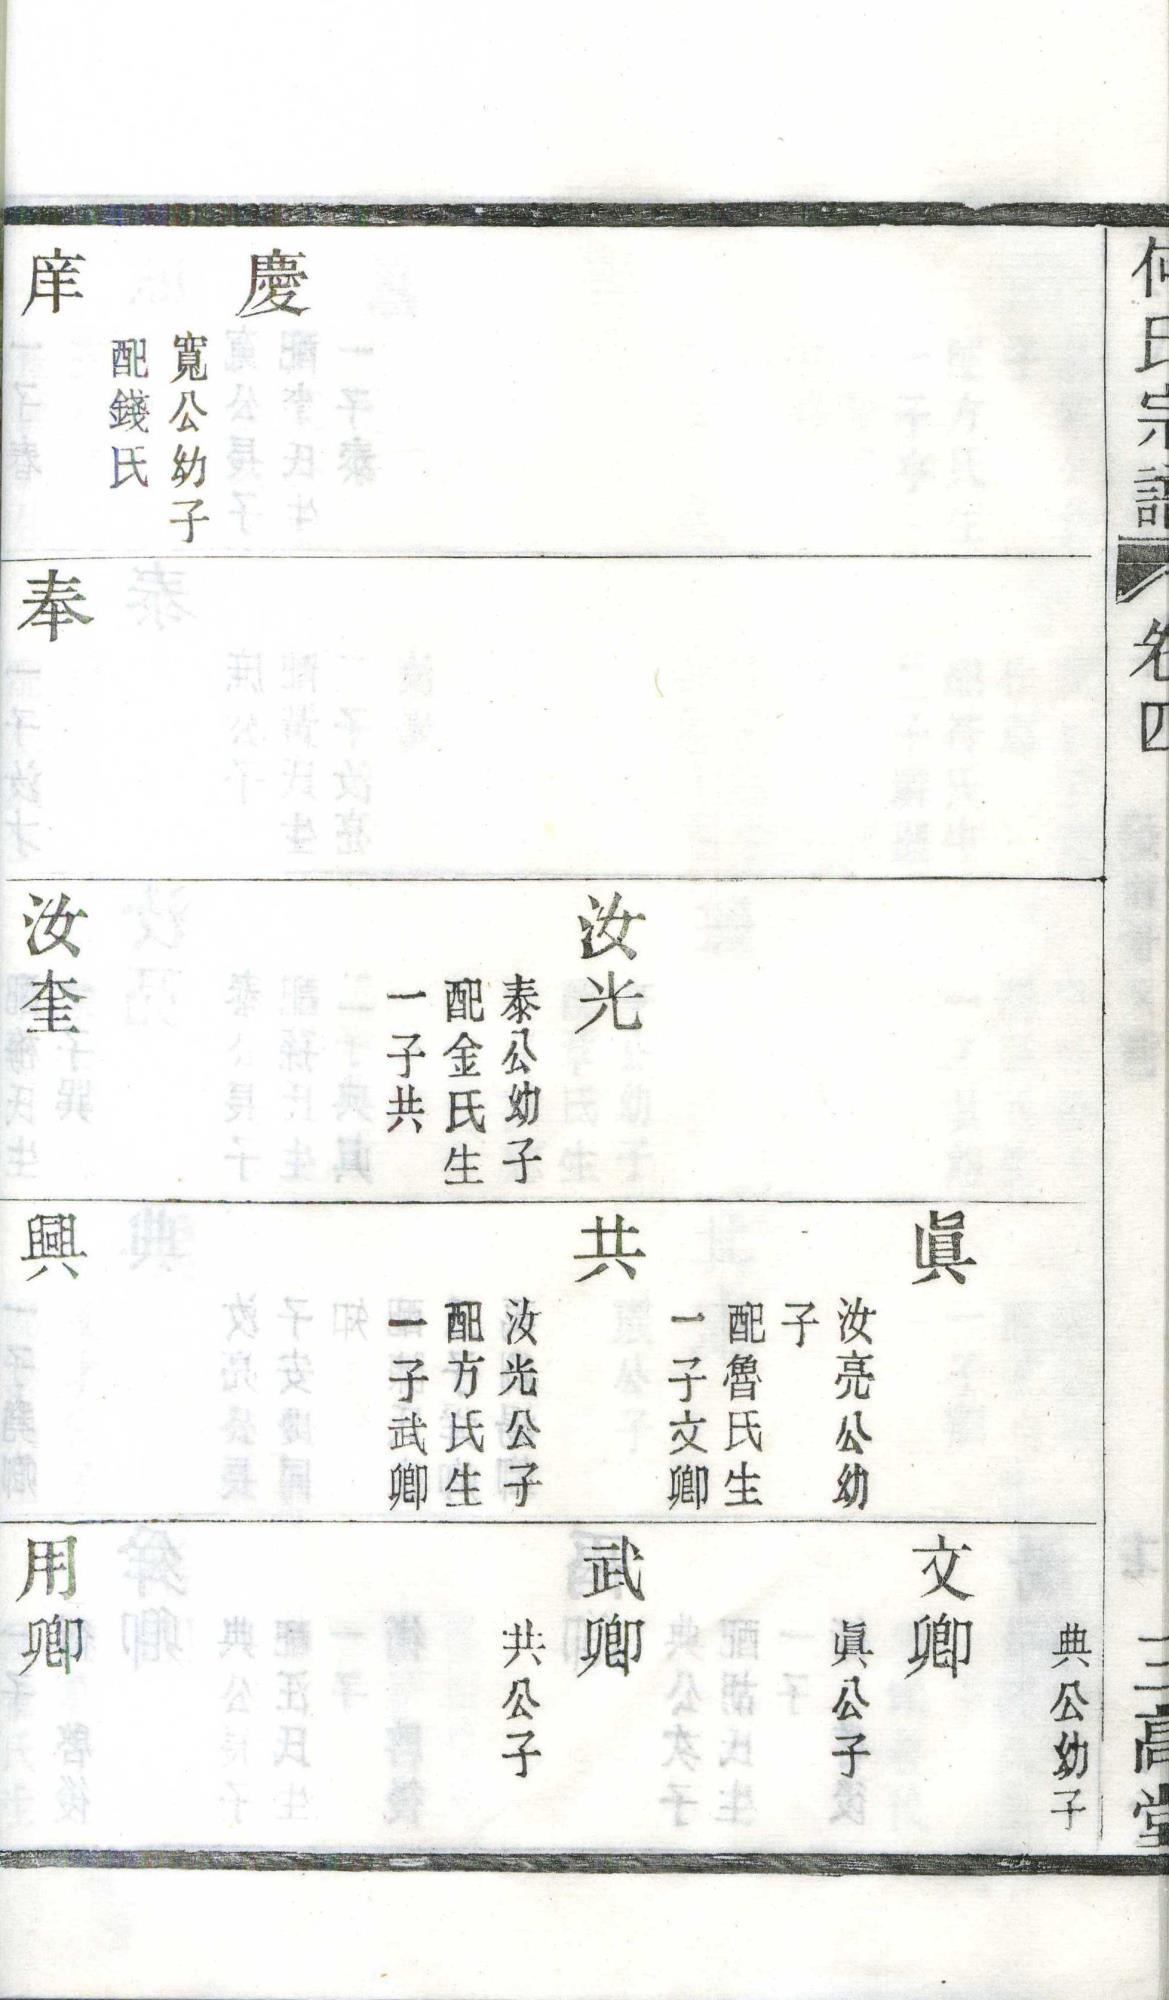 何氏宗譜
卷四
三高堂
慶
寬公幼子
配錢氏
庠
奉
汝光
泰公幼子
配金氏生
一子共
汝奎
眞
汝亮公幼
子
配魯氏生
一子文卿
共
汝光公子
配方氏生
一子武卿
興
典公幼子
文卿
眞公子
武卿
共公子
用卿